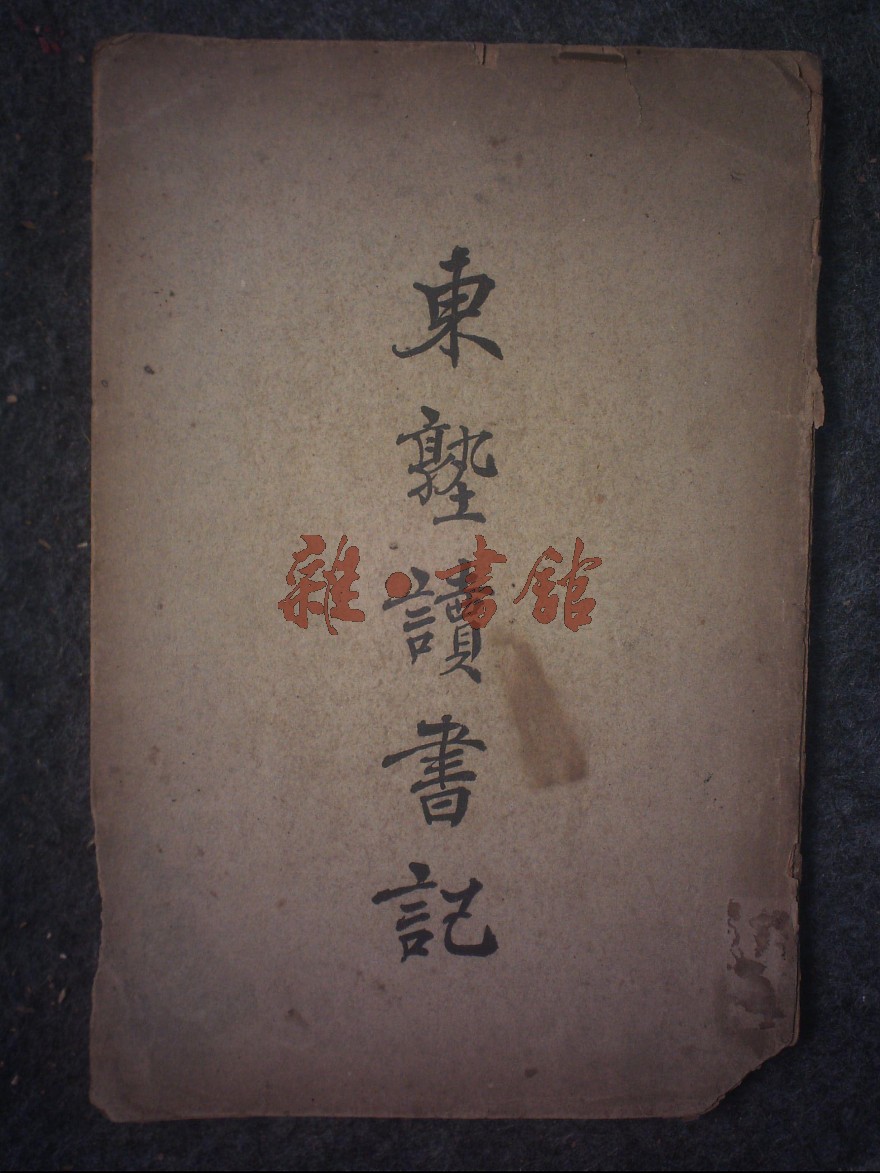 東塾讀書記
雜·書館